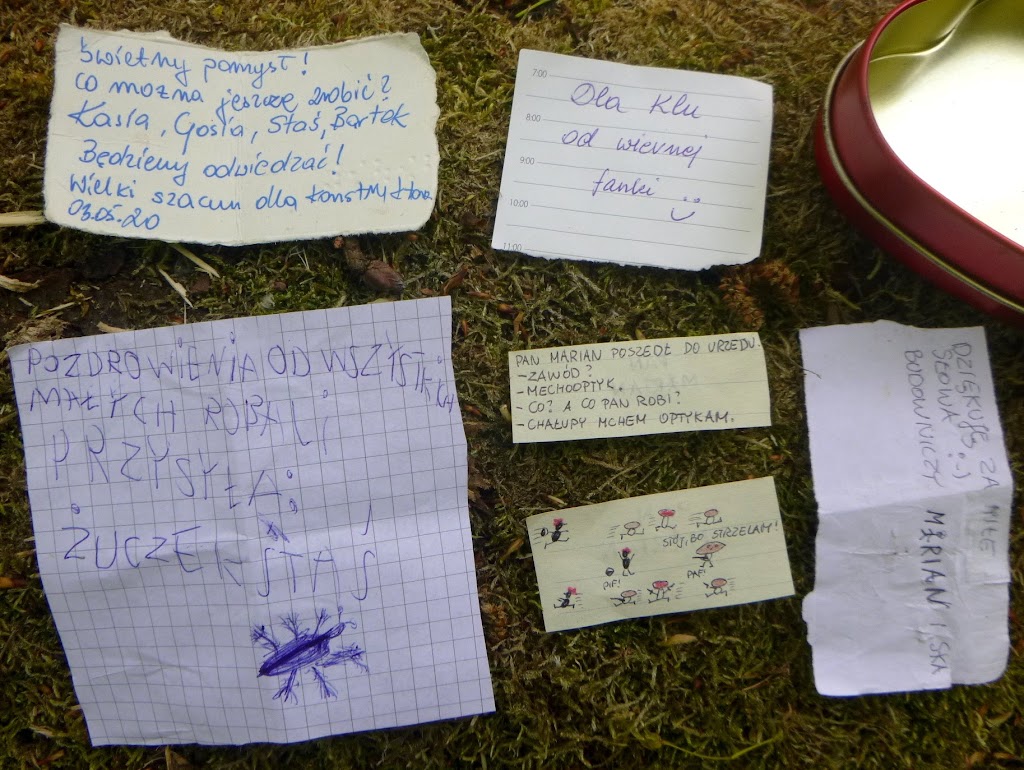 Świetny pomysł!
co można jeszcze zrobić?
Kasia, Gosia, Staś, Bartek
Będziemy odwiedzać!
Wielki szacun dla konstruktora
03.05.20
7:00
8:00
9:00
10:00
11:00
Dla Klu
od wiernej
fanki
POZDROWIENIA OD WSZYSTKICH
MAŁYCH ROBALI
PRZYSYŁA:
ŻUCZEK STAŚ
PAN MARIAN POSZEDŁ DO URZĘDU.
- ZAWÓD?
- MECHOOPTYK.
- CO? A CO PAN ROBI?
- CHAŁUPY MCHEM OPTYKAM.
STÓJ, BO STRZELAM!
PIF!
PAF!
DZIĘKUJĘ ZA MIŁE
SŁOWA :-)
BUDOWNICZY MARIAN